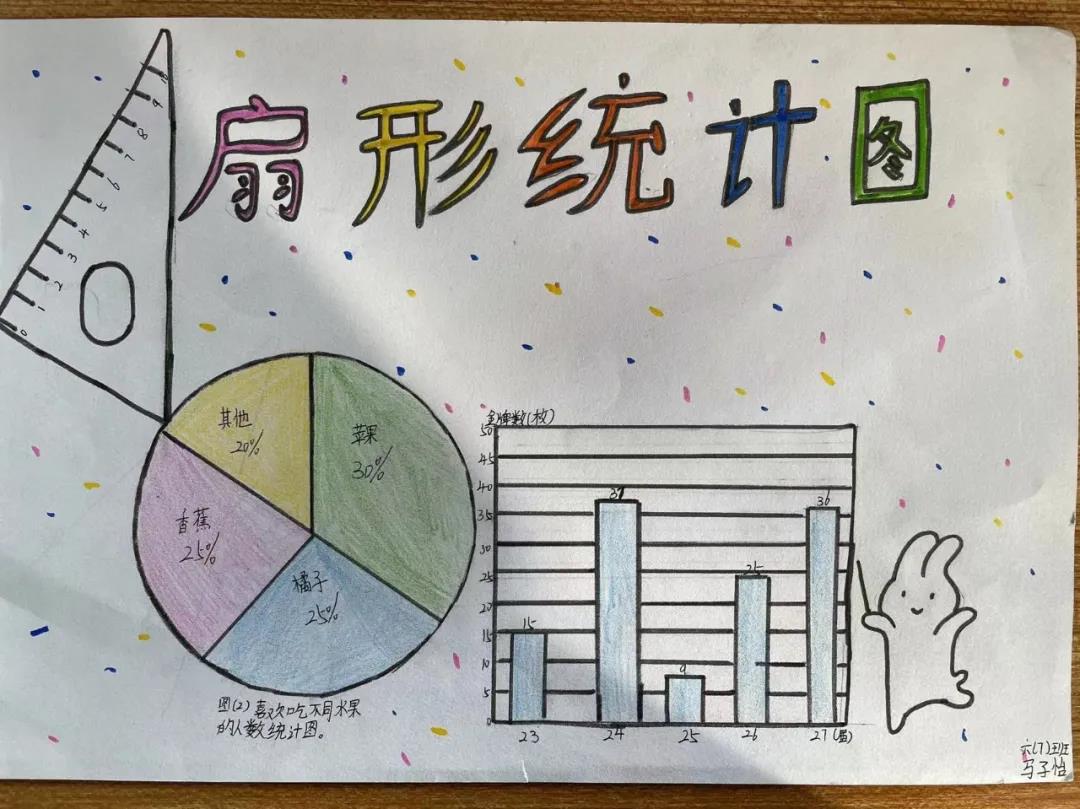 扇形统计图
10
9
8
7
6
5
4
3
2
1
0
其他
20%
苹果
30%
香蕉
25%
橘子
25%
图(2)喜欢吃不同水果
的人数统计图。
金牌数(枚)
50
45
40
35
30
25
20
15
10
5
0
15
37
9
25
36
23 24 25 26 27(届)
六(7)班
马子怡